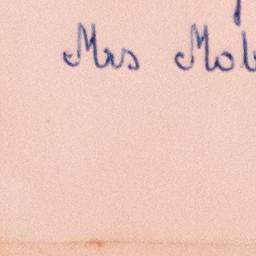 Mrs Mob